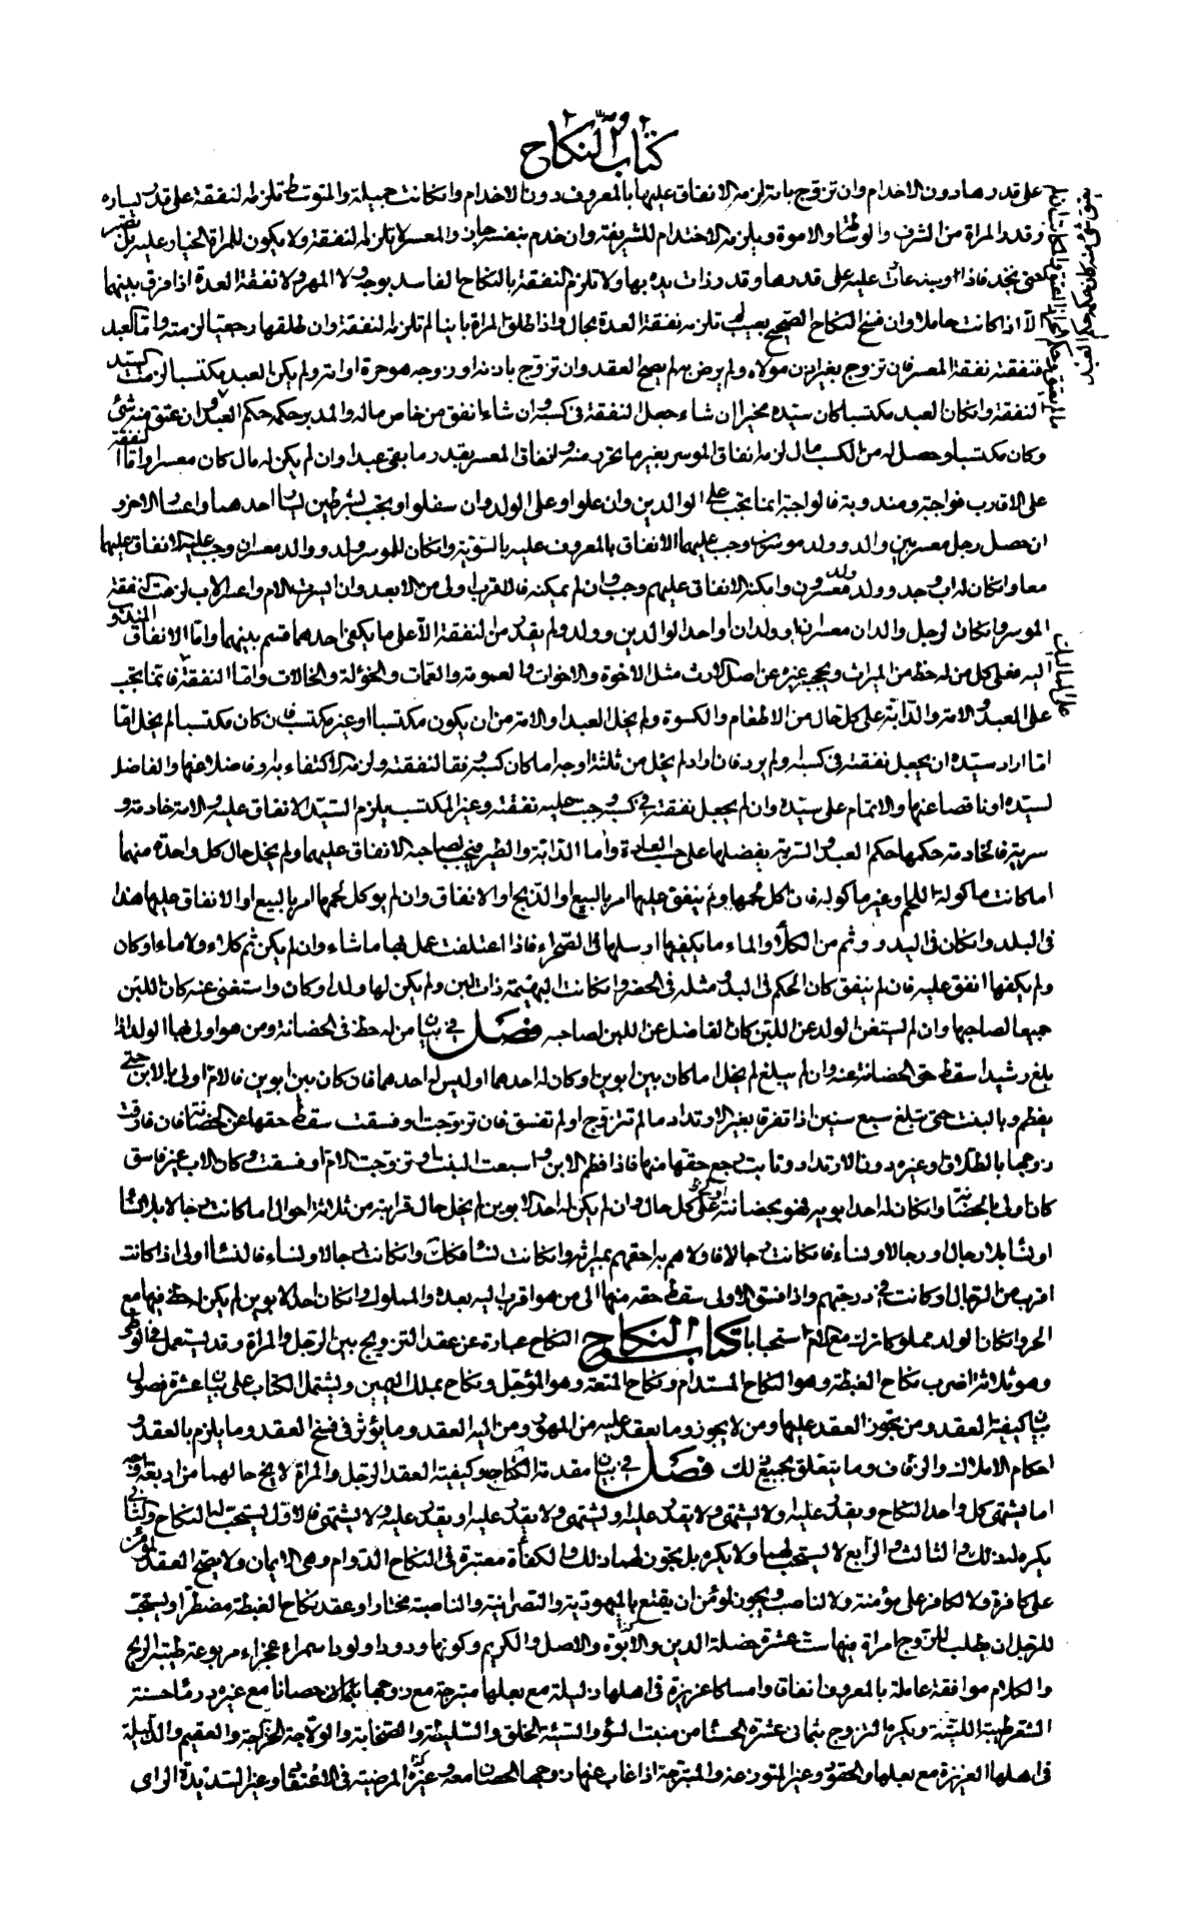 كتاب النكاح
على قدرها دون الاخدام وان تزوج بامة لزمه الانفاق عليها بالمعروف دون الاخدام وان كانت جميلة والمتوسط تلزمه النفقة على قدر يساره
وقدر المراة من الشرف والوساطة والاموة ويلزمه الاخدام للشريفة وان خدم بنفسه جاز والمعسر لا تلزمه النفقة ولا يكون للمراة الخيار عليه بل
بالنكاح الفاسد بوجه ولا المهر ولا نفقة العدة اذا فرق بينهما
الا اذا كانت حاملا وان فسخ النكاح الصحيح بعيب لم تلزمه نفقة العدة بحال واذا طلق المراة باينا لم تلزمه النفقة وان طلقها رجعيا لزمته واما العبد
فنفقته نفقة المعسر فان تزوج بغير اذن مولاه ولم يرض به لم يصح العقد وان تزوج باذنه او زوجه من حرة او امة ولم يكن العبد مكتسبا لزمت سيده
النفقة وان كان العبد مكتسبا كان سيده مخيرا ان شاء جعل النفقة في كسبه وان شاء انفق من خاص ماله والمدبر حكمه حكم العبد وان عتق منه شئ
وكان مكتسبا وحصل له من الكسب مال لزمه انفاق الموسر بقدر ما تحرر منه وانفاق المعسر بقدر ما بقى عبدا وان لم يكن له مال كان معسرا واما النفقة
على الاقارب فواجبة ومندوبة فالواجبة انما يجب على الوالدين وان علوا وعلى الولد وان سفلوا ويجب بشرطين يسار احدهما واعسار الاخر و
ان حصل رجل معسر بين والد وولد موسرين وجب عليهما الانفاق بالمعروف عليه بالسوية وان كان للموسر ولد ووالد معسران وجب عليه الانفاق عليهما
معا وان كان له اب وجد وولد وولد ولد معسرون وامكنه الانفاق عليهم وجب وان لم يمكنه فالاقرب اولى من الابعد وان ايسرت الام واعسر الاب لزمت النفقة
الموسر وان كان لرجل والدان معسران او ولدان او احد الوالدين وولد ولم يقدر من النفقة الا على ما يكفى احدهما قسم بينهما واما الانفاق المندوب
اليه فعلى كل من له حظ من الميراث ويحجب غيره عن اصل الارث مثل الاخوة والاخوات والعمومة والعمات والخؤلة والخالات واما النفقة فانما يجب
على المماليك
على العبد والامة والدابة على كل حال من الاطعام والكسوة ولم يخل العبد او الامة من ان يكون مكتسبا او غير مكتسب فان كان مكتسبا لم يخل اما
اما اراد سيده ان يجعل نفقته في كسبه ولم يرد فان اراد لم يخل من ثلثة اوجه اما كان كسبه وفقا لنفقته ولزمه الاكتفاء به او فاضلا عنها والفاضل
لسيده او ناقصا عنها والاتمام على سيده وان لم يجعل نفقته في كسبه وجب عليه نفقته وغير المكتسب يلزم السيد الانفاق عليه والامة خادمة و
سرية فالخادمة حكمها حكم العبد والسرية يفضلها على حسب العادة واما الدابة والطير فيجب لصاحبه الانفاق عليهما ولم يخل حال كل واحدة منهما
اما كانت ماكولة اللحم او غير ماكوله فان اكل لحمها ولم ينفق عليها امر بالبيع او الذبح او الانفاق وان لم يوكل لحمها امر بالبيع او الانفاق عليها هذا
في البلد وان كان في البدو وثم من الكلا والماء ما يكفيها ارسلها في الصحراء فاذا اعتلفت عمل بها ما شاء وان لم يكن ثم كلاء ولا ماء او كان
ولم يكفها انفق عليه فان لم ينفق كان الحكم في البدو مثله في الحضر وان كانت البهيمة ذات لبن ولم يكن لها ولد او كان واستغنى عنه كان اللبن
جميعا لصاحبها وان لم يستغن الولد عن اللبن كان الفاضل عن اللبن لصاحبه فصل في بيان من له حظ في الحضانة ومن هو اولى بها الولد اذا
بلغ رشيدا سقط حق الحضانة عنه وان لم يبلغ لم يخل اما كان بين ابوين او كان له احدهما او ليس له احدهما فان كان بين ابوين فالام اولى بالابن حتى
يفطم وبالبنت حتى تبلغ سبع سنين اذا تفرقا بغير الارتداد ما لم تتزوج او لم تفسق فان تزوجت او فسقت سقط حقها عن الحضانة فان فارقت
زوجها بالطلاق وغيره دون الارتداد وتابت رجع حقها منها فاذا فطم الابن واسبعت البنت او تزوجت الام او فسقت وكان الاب غير فاسق
كان اولى بالحضانة وان كان له احد ابويه فهو بحضانته اولى على كل حال وان لم يكن له احد الابوين لم يخل حال قرابته من ثلاثة احوال اما كانت رجالا بلا نساء
او نساء بلا رجال او رجالا ونساء فان كانت رجالا فاولاهم به احقهم بميراثه وان كانت نساء فكذلك وان كانت رجالا ونساء فالنساء اولى اذا كانت
اقرب من الرجال او كانت في درجتهم واذا فسق الاولى سقط حقه منها الى من هو اقرب اليه بعده والمملوك ان كان احد الابوين لم يكن له حظ فيها مع
الحر وان كان الولد مملوكا ترك مع الام استحبابا كتاب النكاح النكاح عبارة عن عقد التزويج بين الرجل والمراة وقد يستعمل في الوطئ
وهو ثلاثة اضرب نكاح الغبطة وهو النكاح المستدام ونكاح المتعة وهو المؤجل ونكاح بملك اليمين ويشتمل الكتاب على بيان عشرة فصول
بيان كيفية العقد ومن يجوز العقد عليها ومن لا يجوز وما يعقد عليه من المهور ومن اليه العقد وما يؤثر في فسخ العقد وما يلزم بالعقد و
احكام الاملاك والزفاف وما يتعلق بجميع ذلك فصل في بيان مقدمة النكاح وكيفية العقد الرجل والمراة لا يخ حالهما من اربعة اوجه
اما يشتهى كل واحد النكاح ويقدر عليه او لا يشتهى ولا يقدر عليه او يشتهى ولا يقدر عليه او يقدر عليه ولا يشتهى فالاول يستحب له النكاح والثانى
يكره له ذلك والثالث والرابع لا يستحب لهما ولا يكره بل يجوز لهما ذلك والكفاءة معتبرة في النكاح الدوام وهى الايمان ولا يصح العقد لمؤمن
على كافرة ولا لكافر على مؤمنة ولا لناصب ويجوز لمؤمن ان يتمتع باليهودية والنصرانية والناصبة مختارا وعقد نكاح الغبطة مضطرا ويستحب
للرجل ان يطلب للتزوج امراة فيها ست عشرة خصلة الدين والابوة والاصل والكريم وكونها ودودا ولودا سمراء عجزاء مربوعة طيبة الريح
والكلام موافقة عاملة بالمعروف انفاقا وامساكا عزيزة في اهلها ذليلة مع بعلها متبرجة مع زوجها حصانا مع غيره درماء حسنة
الشعر طيبة الليتة ويكره التزوج بثمانى عشرة الحسناء من منبت السوء والسيئة الخلق والسليطة والصخابة والولاجة الخراجة والعقيم والذليلة
في اهلها العزيزة مع بعلها والحقود وغير المتورعة والمتبرجة اذا غاب عنها زوجها الحصان معه وغير المرضية في الاعتقاد وغير السديدة الراى